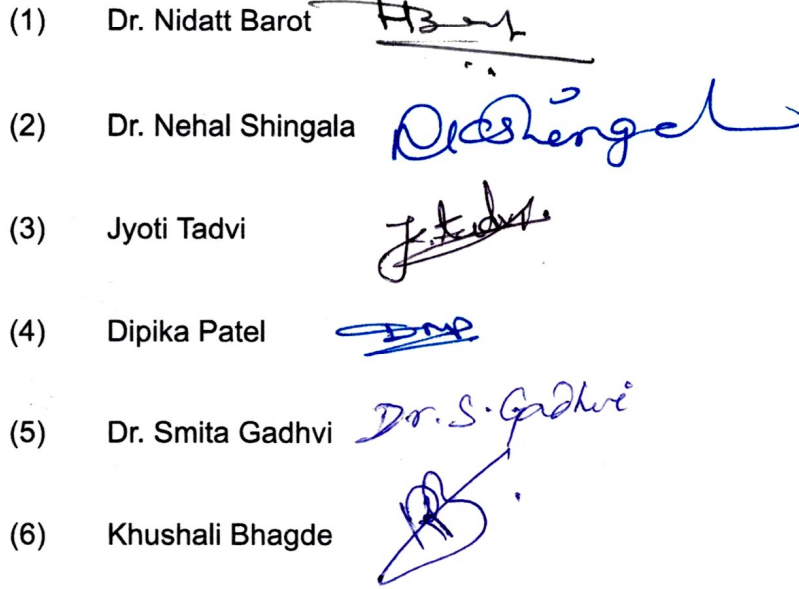 (1) Dr. Nidatt Barot
(2) Dr. Nehal Shingala
(3) Jyoti Tadvi
(4) Dipika Patel
(5) Dr. Smita Gadhvi Dr. S. Gadhvi
(6) Khushali Bhagde